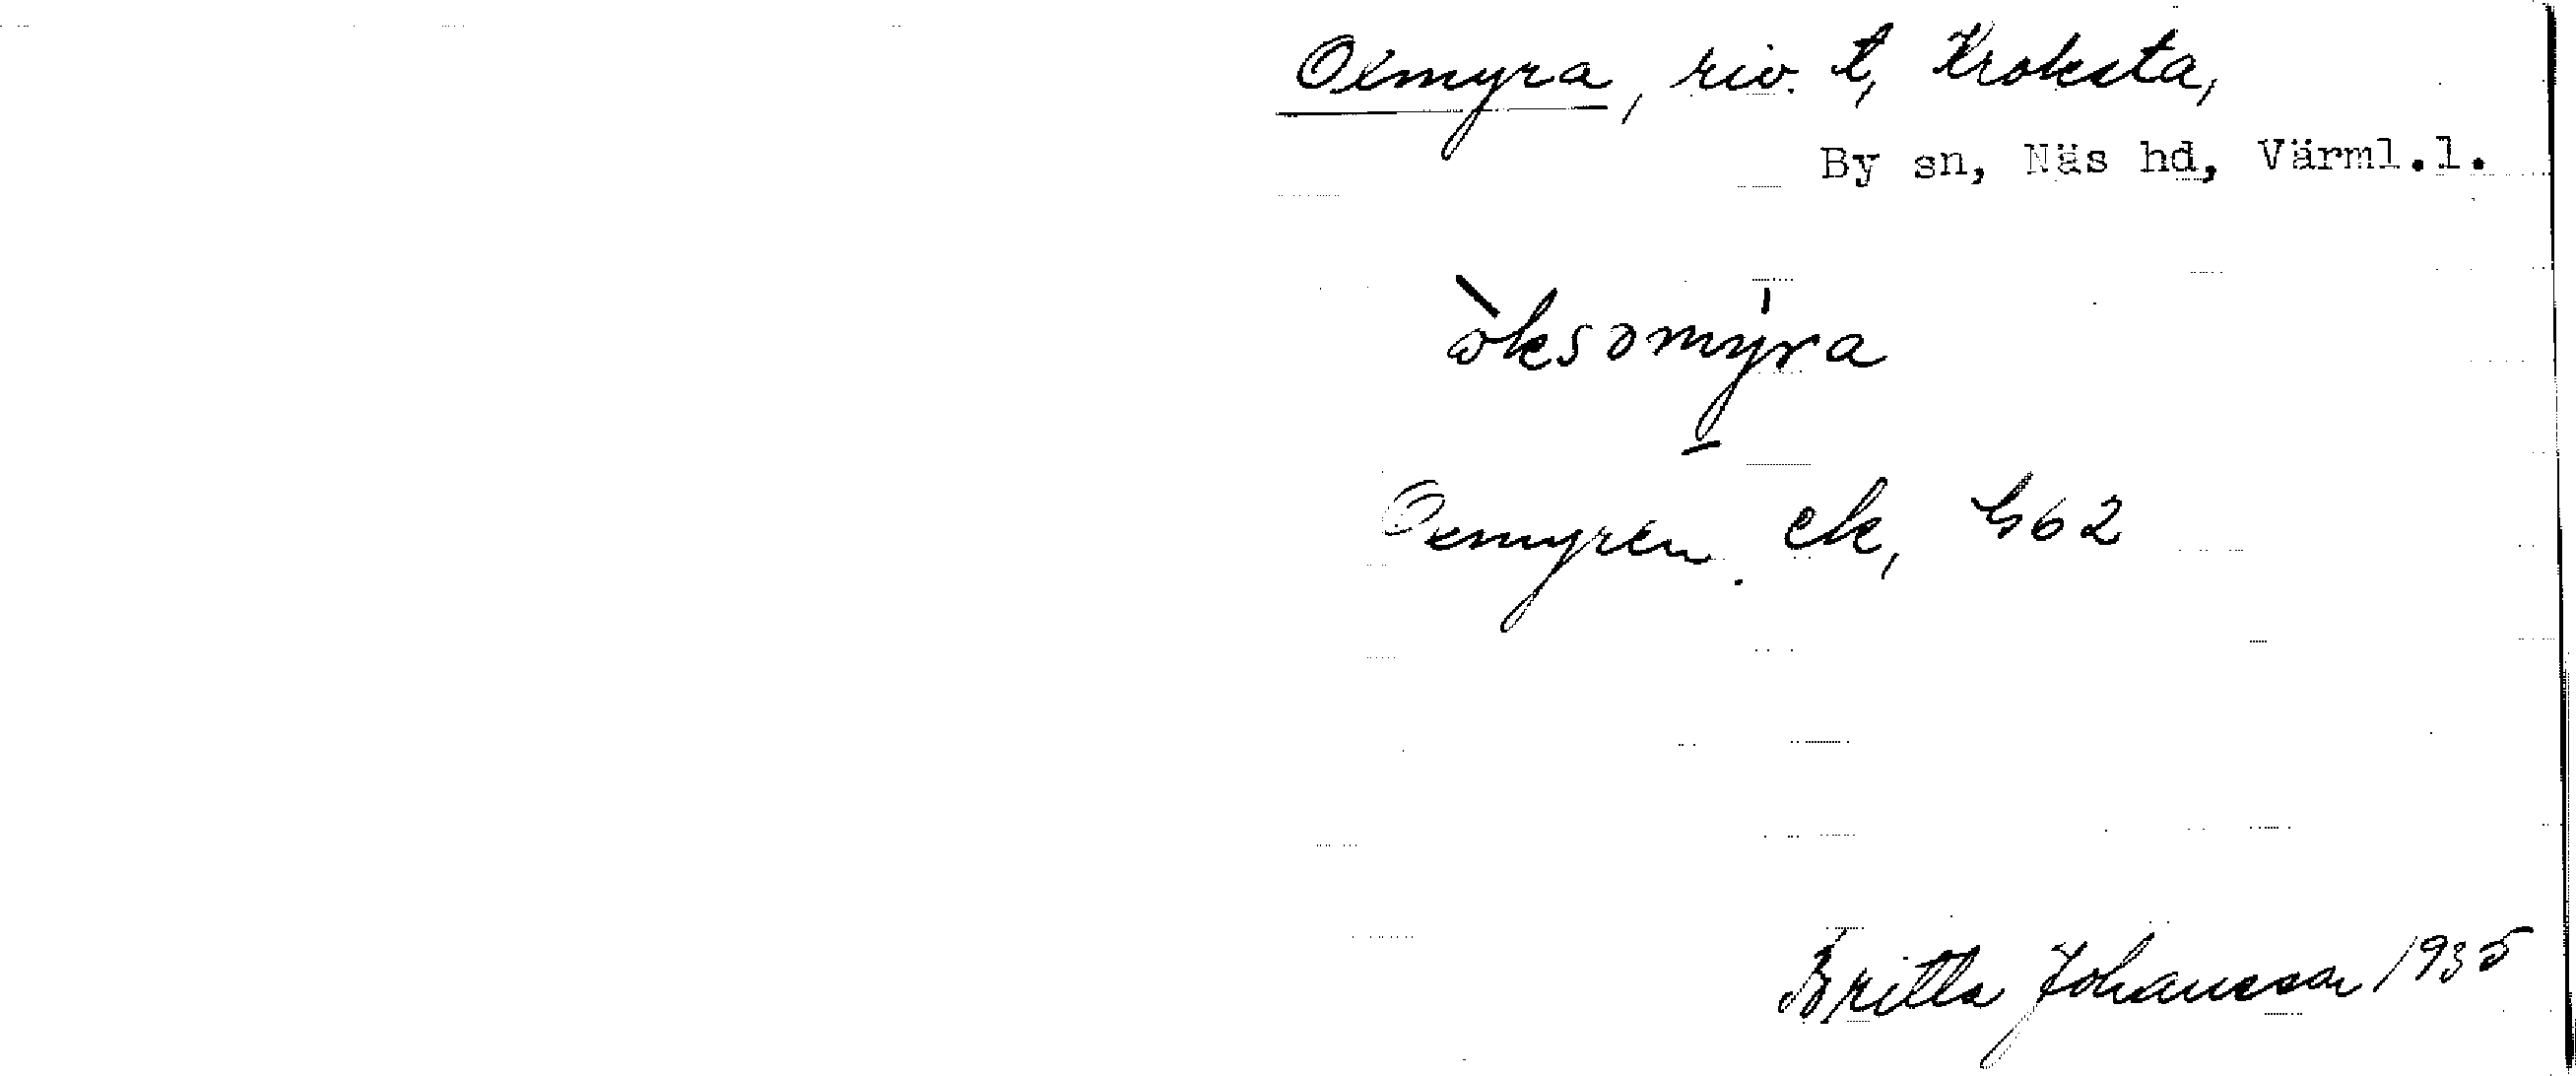 Oxmyra, riv. t, Kroksta,
By sn, Näs hd, Värml.l.
òksəmýra
Oxmyren ek, 462
Britta Johansson 1935